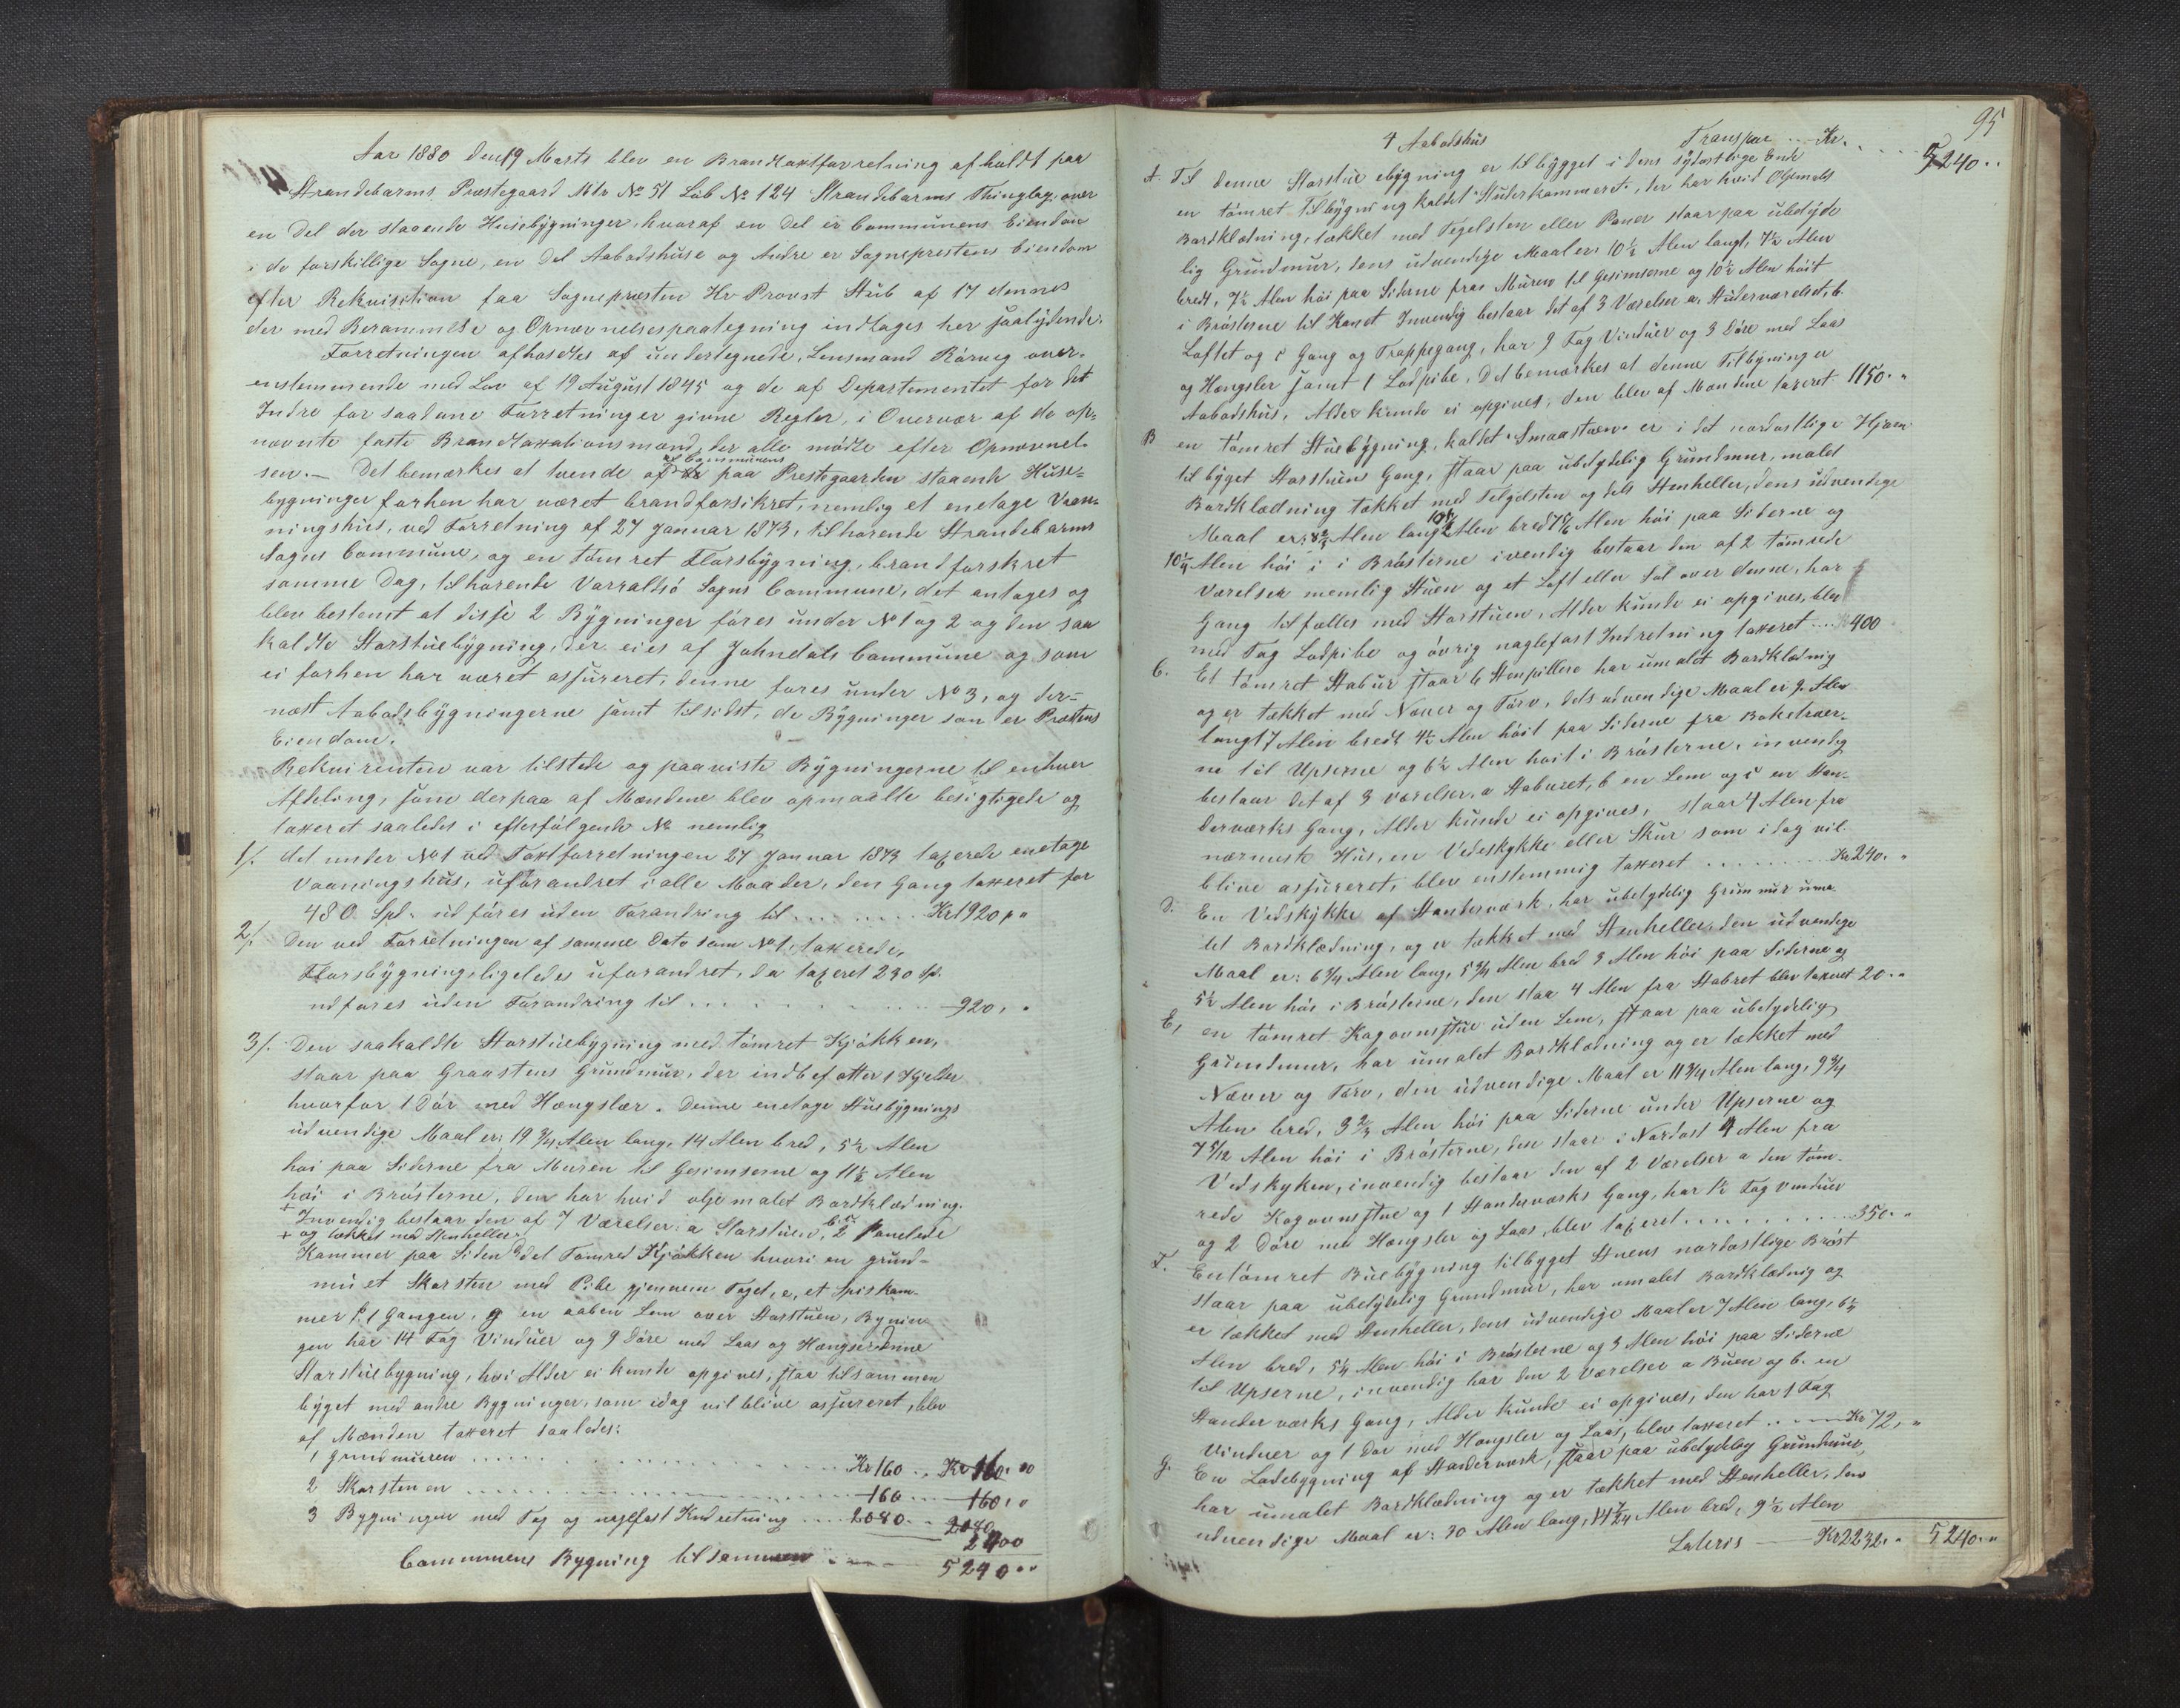 Aar 1880 den 19 Marts blev en Brandtaxtforretning afholdt paa
Strandebarms Præstegaard Mtr No 51 Løb No 124 Strandebarms Thinglag, over
en Del der staaende Huusbygninger, hvoraf en Del er Communens Eiendom
i de forskillige Sogne, en Del Aabodshuse og Andre er Sogneprestens Eiendom
efter Rekvisition fra Sognepræsten Hr Provst Stub af 17 dennes
der med Berammelse og Opnævnelsespaategning indtages her saalydende.
Forretningen afholdtes af undertegnede, Lensmand Rörvig over-
ensstemmende med Lov af 19 August 1845 og de af Departementet for det
Indre for saadane Forretninger givne Regler, i Overvær af de op-
nævnte faste Brandtaxationsmænd, der alle mödte efter Opnævnel-
sen. – Det bemærkes at tvende af Communens paa Prestegaarden staaende Huse-
bygninger forhen har været brandforsikret, nemlig et enetage Vaa-
ningshus, ved Forretning af 27 Januar 1873, tilhørende Strandebarms
Sogns Commune, og en tömret Florsbygning, brandforskret
samme Dag, tilhørende Varraldsö Sogns Commune, det antages og
blev bestemt at disse 2 Bygninger föres under No 1 og 2 og den saa
kaldte Storstuebygning, der eies af Johndals Commune og som
ei forhen har været assureret, denne føres under No 3, og der-
næst Aabodsbygningerne samt tilsidst, de Bygninger som er Præstens
Eiendom.
Rekvirenten var tilstede og paaviste Bygningerne til enhver
Afdeling, som derpaa af Mændene blev opmaalte besigtigede og
taxeret saaledes i efterfölgende No nemlig
1/. det under No 1 ved Taxtforretningen 27 Januar 1873 taxerede enetage
Vaaningshus, uforandret i alle Maader, den Gang taxeret for
480 Spd. udföres uden Forandring til . . . . . . . Kr 1920 „ „
2/. Den ved Forretningen af samme Dato som No 1, taxerede,
Florsbygning ligeledes uforandret, da taxeret 230 Sp.
udføres uden Forandring til . . . . . . . . 920, „
3/. Den saakaldte Storstuebygning med tömret Kjökken,
staar paa Graastens Grundmur, der indbefatter 1 Kjelder
hvorfor 1 Dör med Hængslær. Denne enetage Stuebygnings
udvendige Maal er: 19 3/4 Alen lang, 14 Alen bred, 5 1/2 Alen
høi paa Siderne fra Muren til Gesimserne og 11 1/2 Alen
höi i Brösterne, den har hvid oljemalet Bordklædning.
+
Invendig bestaar den af 7 Værelser: a Storstuen, b. c. 2 Panelede
+ og tækket med Stenheller.
Kammer paa Siden d det Tømred Kjökken hvori en grund-
muret Skorsten med Pibe gjennem Taget, e, et Spiskam-
mer f. 1 Gangen, g en aaben Lem over Storstuen, Bynin
gen har 14 Fag Vinduer og 9 Döre med Laas og Hængser. Denne
Storstuebygning, hvis Alder ei kunde opgives, staa tilsammen
byget med andre Bygninger, som idag vil blive assureret, blev
af Mænden taxeret saaledes:
1 Grundmuren . . . . . . . Kr 160 „ Kr 160. „„
2 Skorstenen . . . . . . . 160 . . . 160, „
3 Bygningen med Tag og naglfast Indretning . . . . 2080 . . 2080
2400
Communens Bygning tilsammen . . . . 5240 „„
95
4 Aabodshus Transpor . . . Kr. . . . . 5240 „
A. Til denne Storstue ebygning er tilbygget i dens sydostlige Ende
en tömret Tilbygning kaldet "Studerkammeret", der har hvid Oljemalt
Bordklædning, tækket med Tegelsten eller Paner staar paa ubetyde
lig Grundmur, dens udvendige Maal er: 10 1/2 Alen langt, 7 1/2 Alen
bredt, 7 1/2 Alen höi paa Siderne fraa Muren til Gesimserne og 10 1/2 Alen höit
i Brösterne til Kanet Invendig bestaar det af 3 Værelser a, Studerværelset, b.
Loftet og c Gang og Trappegang, har 9 Fag Vinduer og 3 Döre med Laas
og Hængsler samt 1 Ladpibe. Det bemærkes at denne Tilbyning er
Aabodshus, Alder kunde ei opgives, den blev af Mændene taxeret 1150. „
B en tömret Stuebygning, kaldet "Smaastuen" er i det nordostlige Hjørn
tilbyget Storstuens Gang, staar paa ubetydelig Grundmur, malet
Bordklædning tækket med Telgelsten og dels Stenheller, dens udvendige
Maal er: 8 2/3 Alen lang 10 1/2 Alen bred 7 1/6 Alen höi paa Siderne og
10 1/4 Alen höi i i Brösterne ivendig bestaar den af 2 tömrede
Værelser nemlig Stuen og et Loft eller Sal over denne, har
Gang tilfælles med Storstuen, Alder kunde ei opgives, blev
med Tag Ladpibe og övrig naglefast Indretning taxeret . . . 400
C. Et tömret Stabur staar 6 Stenpillere har umalet Bordklædnig
og er tækket med Næver og Törv, dets udvendige Maal er 9 Alen
langt 7 Alen bredt 4 1/2 Alen höit paa Siderne fra Bakstraer-
ne til Upserne og 6 1/2 Alen höit i Brösterne, invendig
bestaar det af 3 værelser. a Staburet, b en Lem og c en Stan-
derværks Gang, Alder kunde ei opgives, staar 4 Alen fra
nærmeste Hus, en Vedeskykke eller Skur som idag vil
blive assureret, blev enstemmig taxeret . . . . . . . Kr 240. „
D. En Vedskykke af Standerværk, har ubetydelig Grunmur uma-
let Bordklædning, og er tækket med Stenheller, den udvendige
Maal er: 6 3/4 Alen lang, 5 3/4 Alen bred 3 Alen höi paa Siderne og
5 1/2 Alen höi i Brösterne, den staa 4 Alen fra Stabret blev taxeret 20. „
E, en tömret Kagovnsstue uden Lem, staar paa ubetydelig
Grundmur, har umalet Bordklædning og er tækket med
Næver og Törv, den udvendige Maal er 11 3/4 Alen lang, 9 3/4
Alen bred, 3 2/3 Alen höi paa Siderne under Upserne og
7 5/12 Alen höi i Brösterne, den staar i Nordost 4 Alen fra
Vedskyken, invendig bestaar den af 2 Værelser a den töm-
rede Kagovnsstue og 1 Standerværks Gang, har 1 1/2 Fag vinduer
og 2 Döre med Hængsler og Laas, blev taxeret . . . . . . . 350. „
F. En tömret Buebygning tilbyget Stuens nordostlige Bröst
staar paa ubetydelig Grundmur, har umalet Bordklædnig og
er tækket med Stenheller, dens udvendige Maal er 7 Alen lang, 6 1/4
Alen bred, 5 1/4 Alen höi i Brösterne og 3 Alen höi paa Siderne
til Upserne, invendig har den 2 værelser a Buen og b. en
Standerværks Gang, Alder kunde ei opgives, den har 1 Fag
Vinduer og 1 Dør med Hængsler og Laas, blev taxeret . . . Kr 72, „
g. En Ladebygning af Standerværk, staar paa ubetydelig Grundmur,
har umalet Bordklædning og er tækket med Stenheller, dens
udvendige Maal er: 30 Alen lang, 14 7/24 Alen bred, 9 1/2 Alen
Lateris — Kr 2232. „ 5240. „